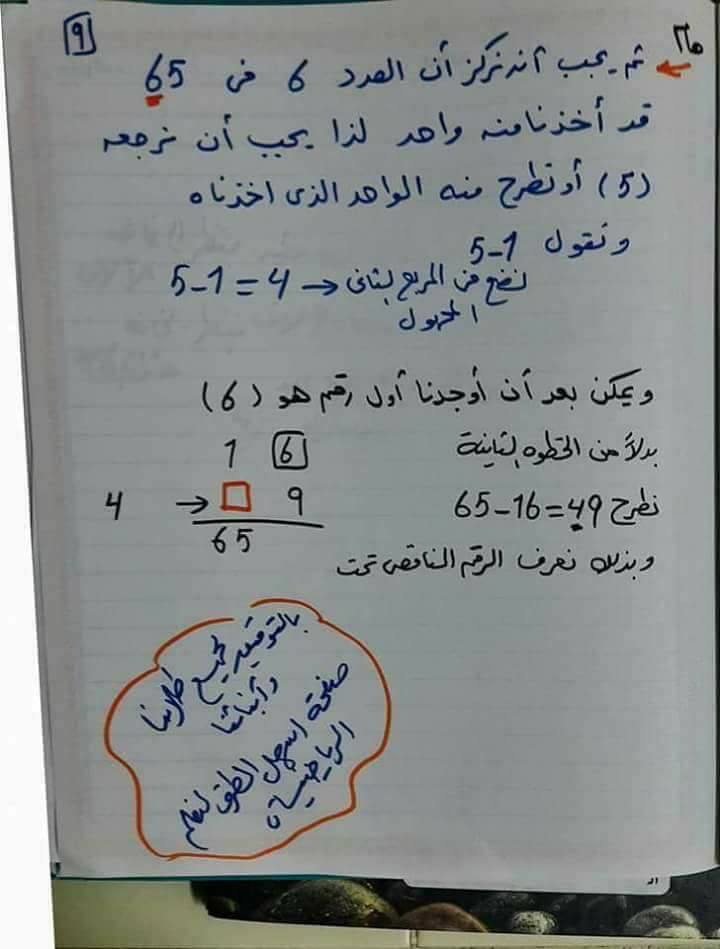 9
ثم يجب أن نركز أن العدد 6 في 65
قد أخذنا منه واحد لذا يجب أن نرجعه
(5) أو نطرح منه الواحد الذى اخذناه
ونقول 5-1
نضع فى المربع الثانى → 5-1=4
المجهول
ويمكن بعد أن أوجدنا أول رقم هو (6)
بدلاً من الخطوه الثانية
1 6
نطرح 65-16=49
4 → □ 9
65
وبذلك نعرف الرقم الناقص تحت
بالتوفيق لجميع طلابنا
وأبنائنا
صفحة اسهل الطرق لتعلم
الرياضيات